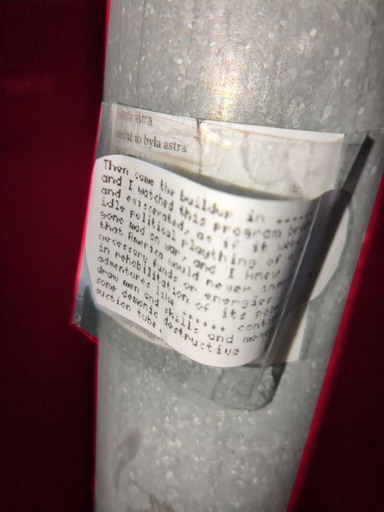 astra
to byla astra
Then came the buildup in ......
and I watched this program bro
and eviscerated, as if it were
idle political plaything of a
gone mad on war, and I knew
that America would never inves
necessary funds or energies
in rehabilitation of its poor
adventures like ...... conti
draw men and skills and mone
some demonic destructive
suction tube.